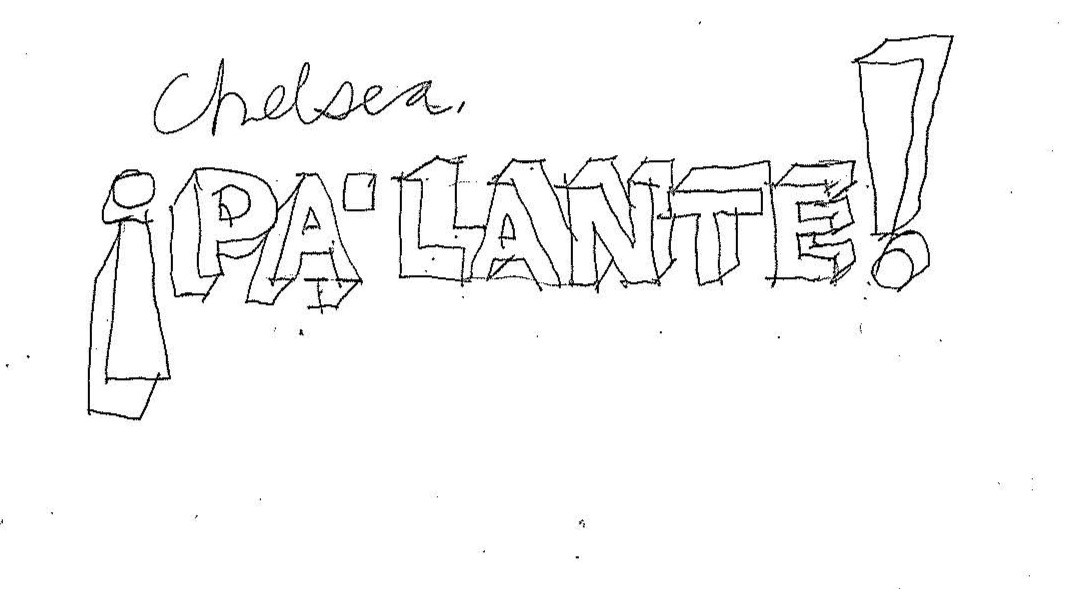 Chelsea,
¡PA'LANTE!